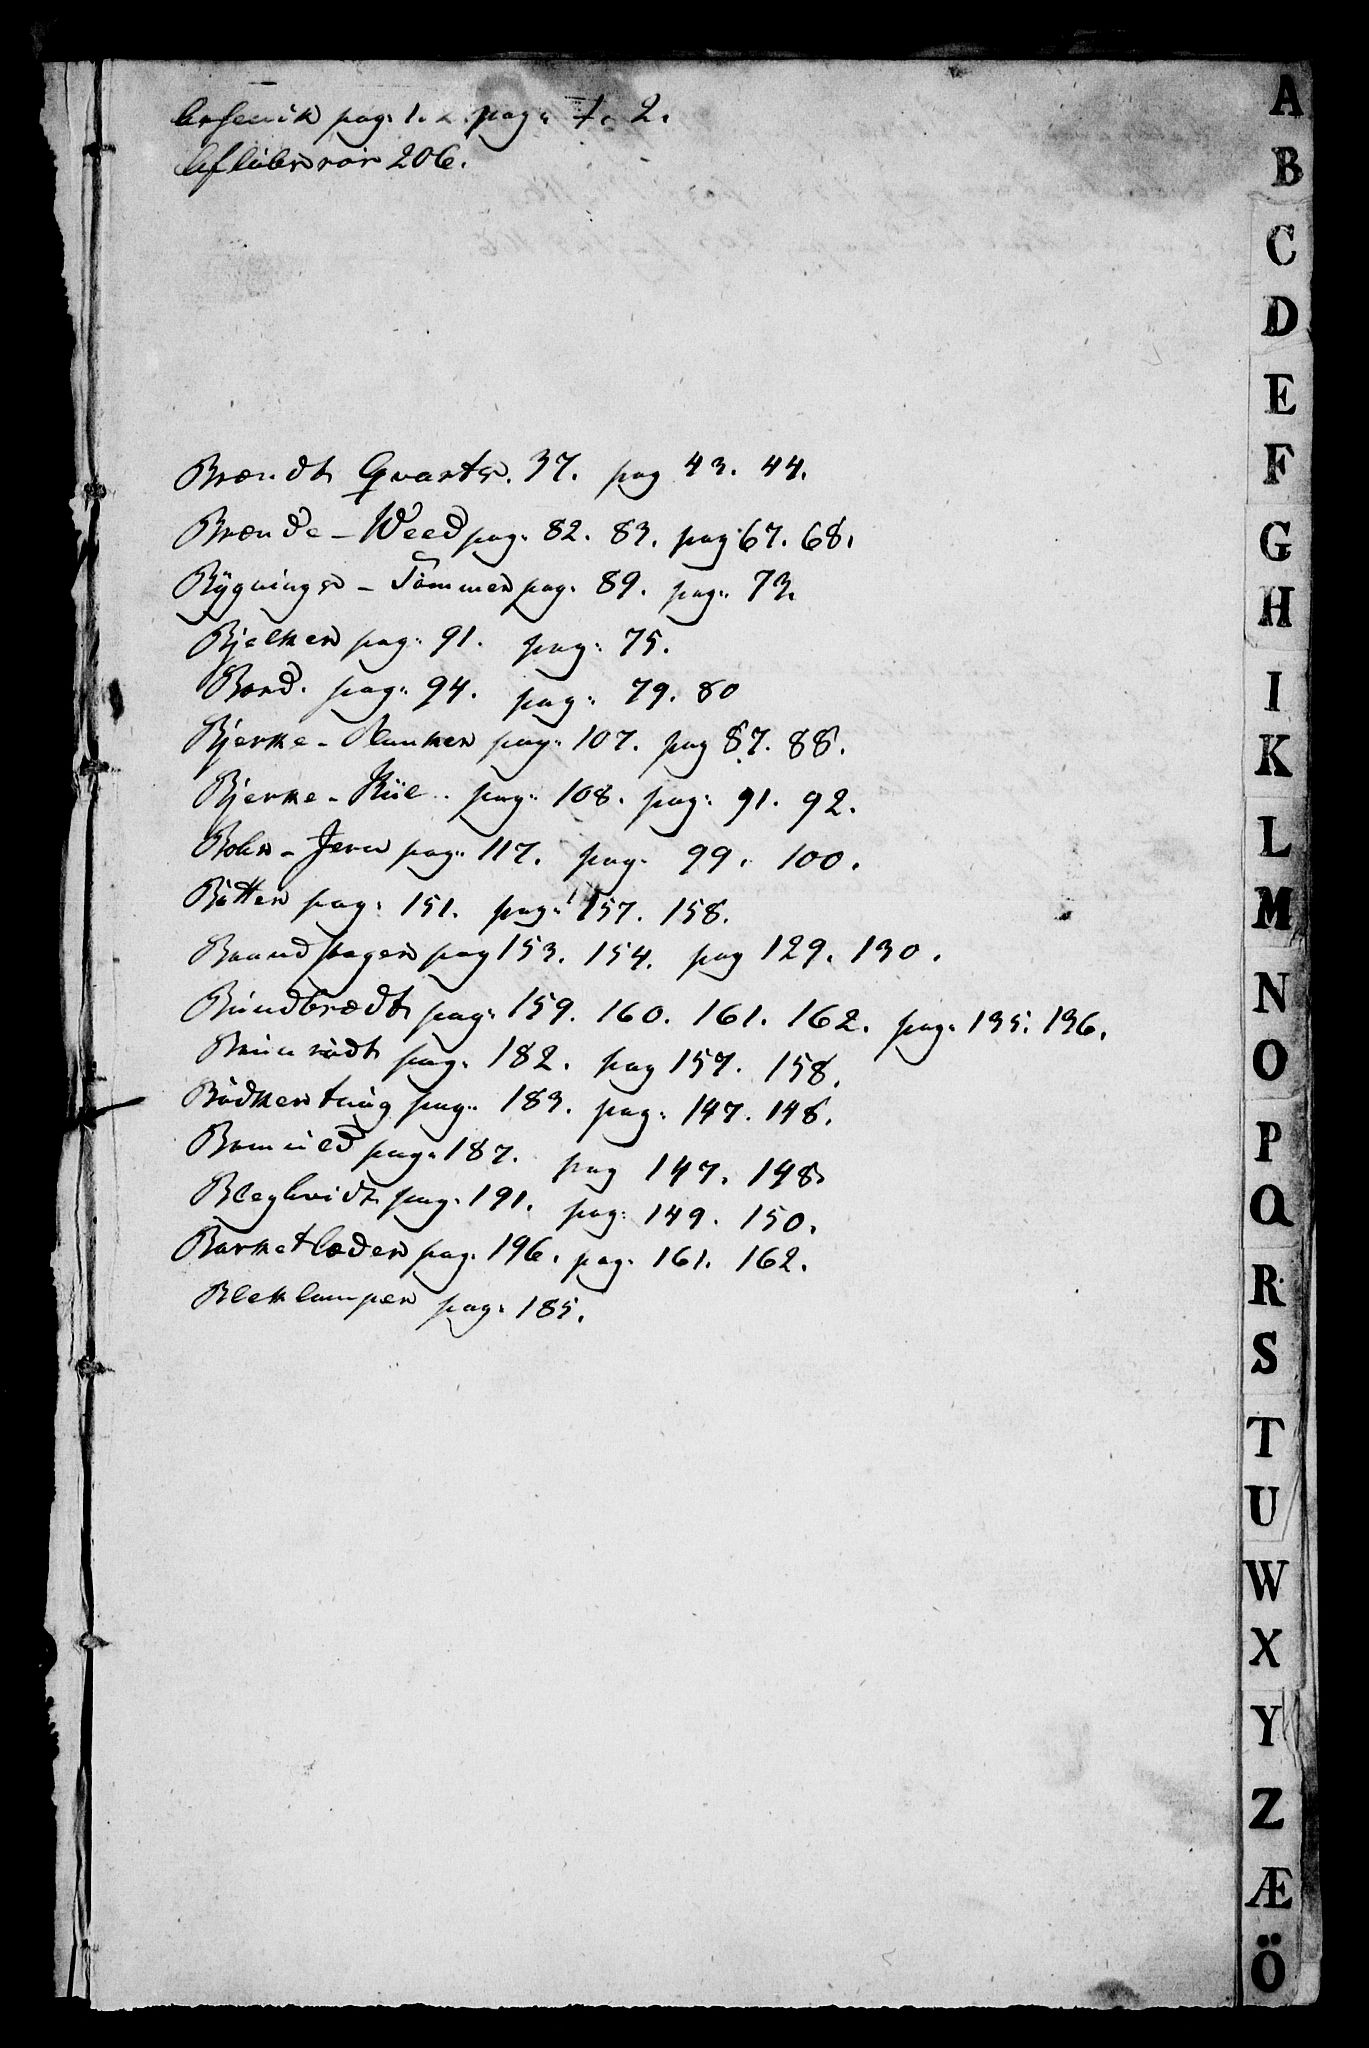 Arsenik pag: 1. 2. pag: 1. 2.
Afløbsrør 206.
Brændt Qvarts. 37. pag 43. 44.
Brænde-Weed pag. 82. 83. pag 67. 68.
Bÿgnings-Tömmer pag. 89. pag: 73.
Bjelker pag: 91. pag: 75.
Bord. pag: 94. pag: 79. 80
Bjerke-Planker pag: 107. pag 87. 88.
Bjerke-Kül. pag: 108. pag: 91. 92.
Bolte-Jern pag: 117. pag. 99. 100.
Bötter pag: 151. pag: 157. 158.
Brandhager pag 153. 154. pag 129. 130.
Bundbrædt pag: 159. 160. 161. 162. pag: 135. 136.
Brünrödt pag. 182. pag 157. 158.
Bödkertöig pag: 183. pag: 147. 148.
Bomüld pag: 187. pag 147. 148.
Bleghvidt pag. 191. pag: 149. 150.
Barket læder pag. 196. pag. 161. 162.
Bleklamper pag: 185.
A
B
C
D
E
F
G
H
I
K
L
M
N
O
P
Q
R
S
T
U
W
X
Y
Z
Æ
Ö